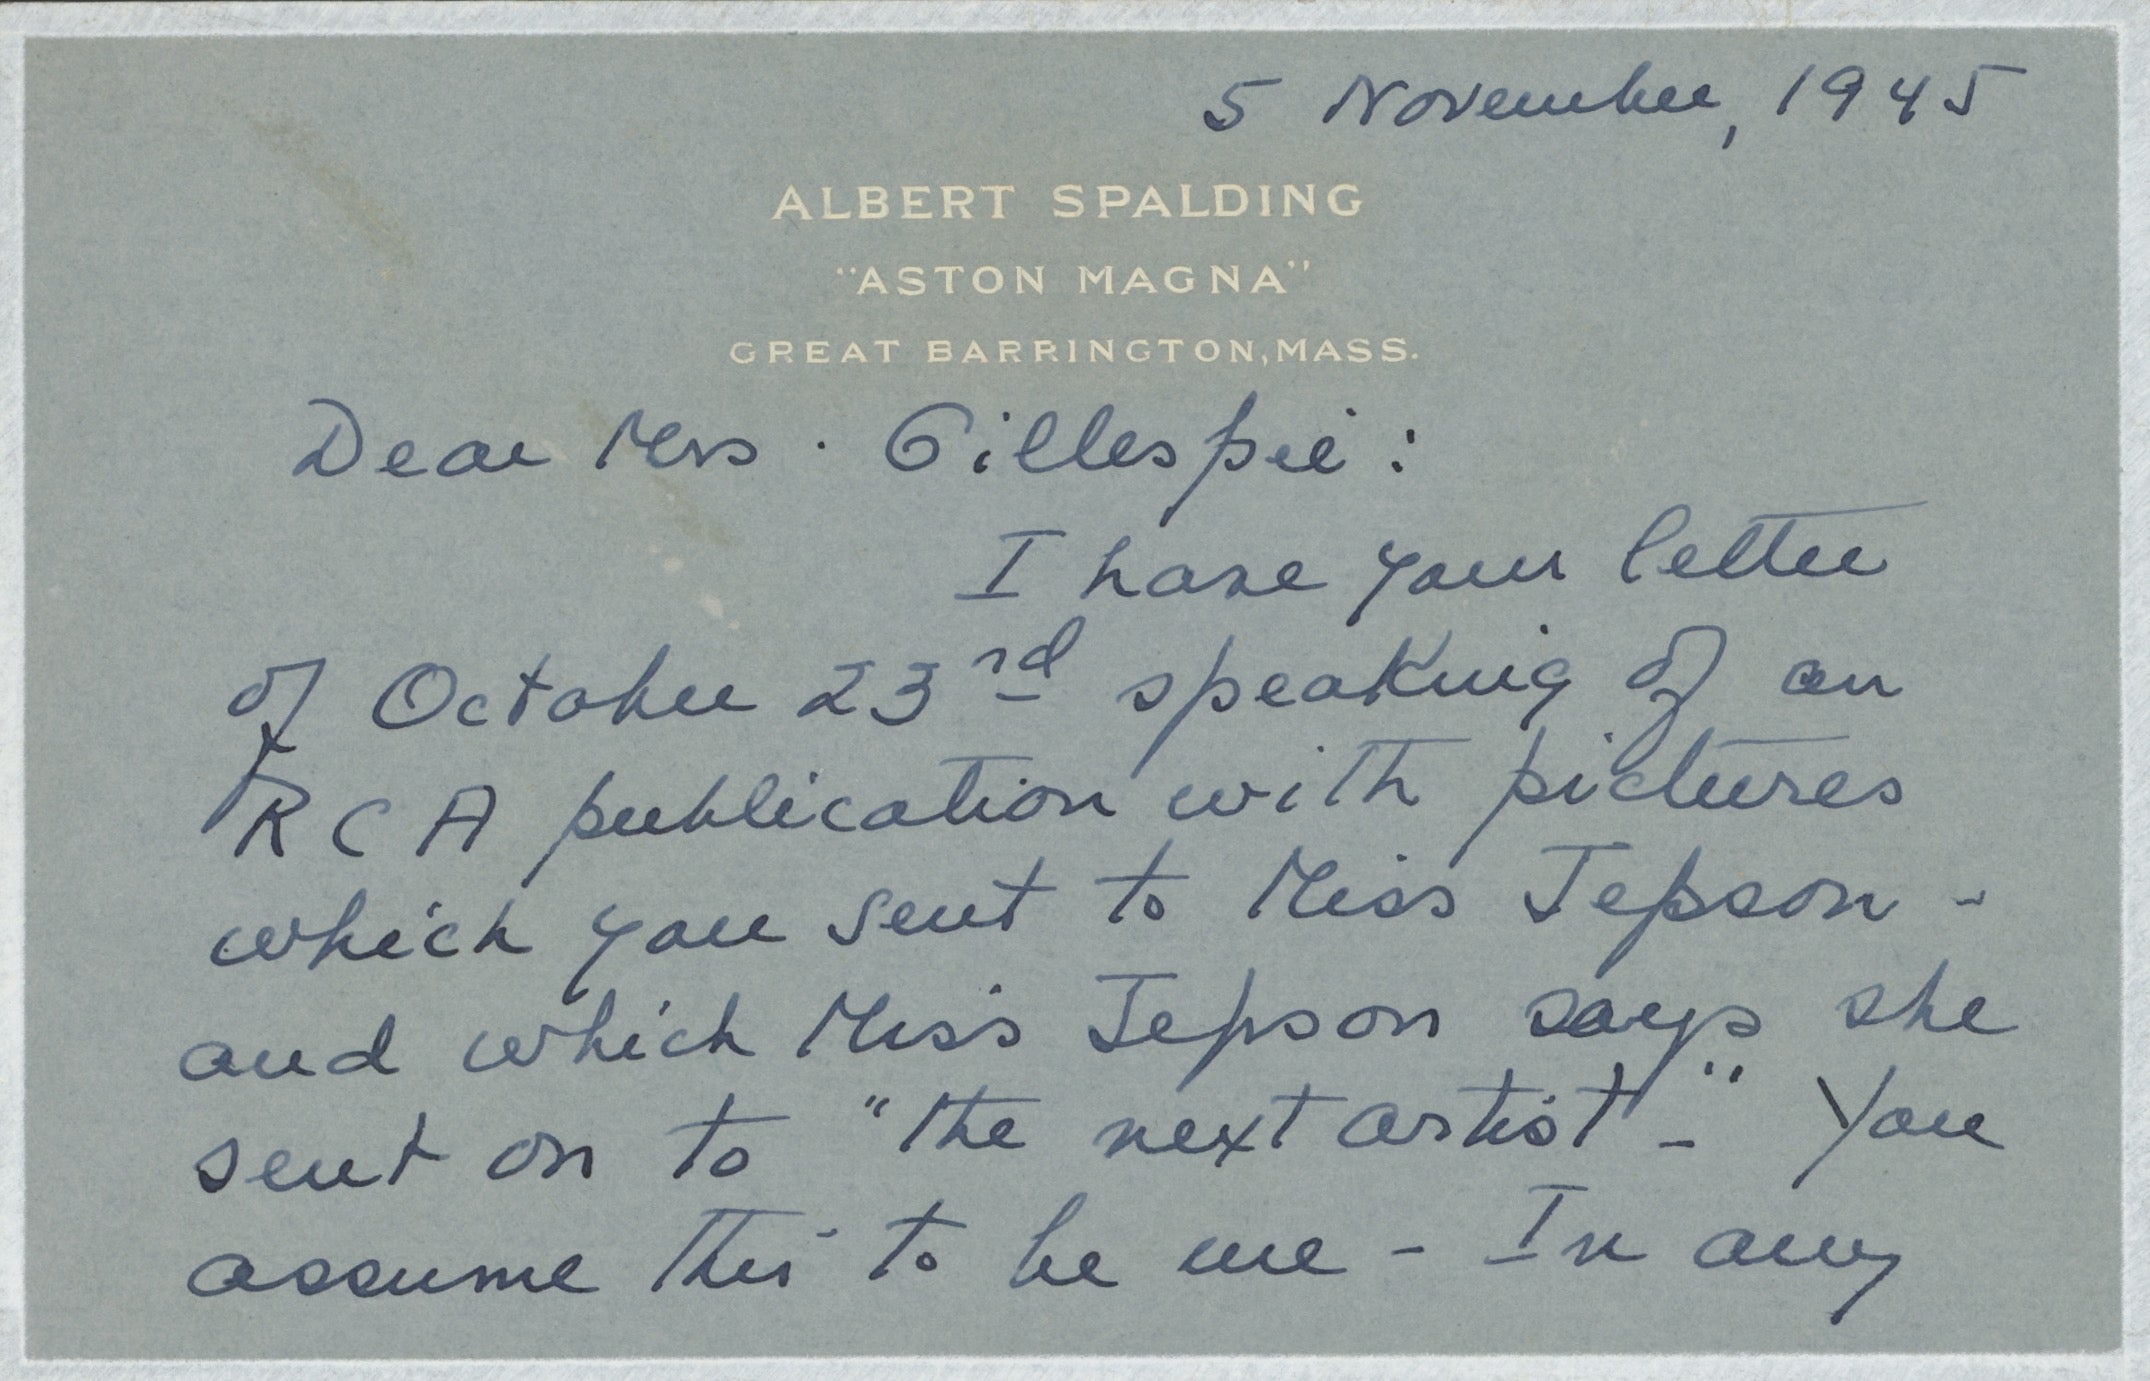 5 November, 1945
ALBERT SPALDING
"ASTON MAGNA"
GREAT BARRINGTON, MASS.
Dear Mrs. Gillespie:
I have your letter
of October 23rd speaking of an
RCA publication with pictures
which you sent to Miss Jepson -
and which Miss Jepson says she
sent on to "the next artist -" You
assume this to be me - In any